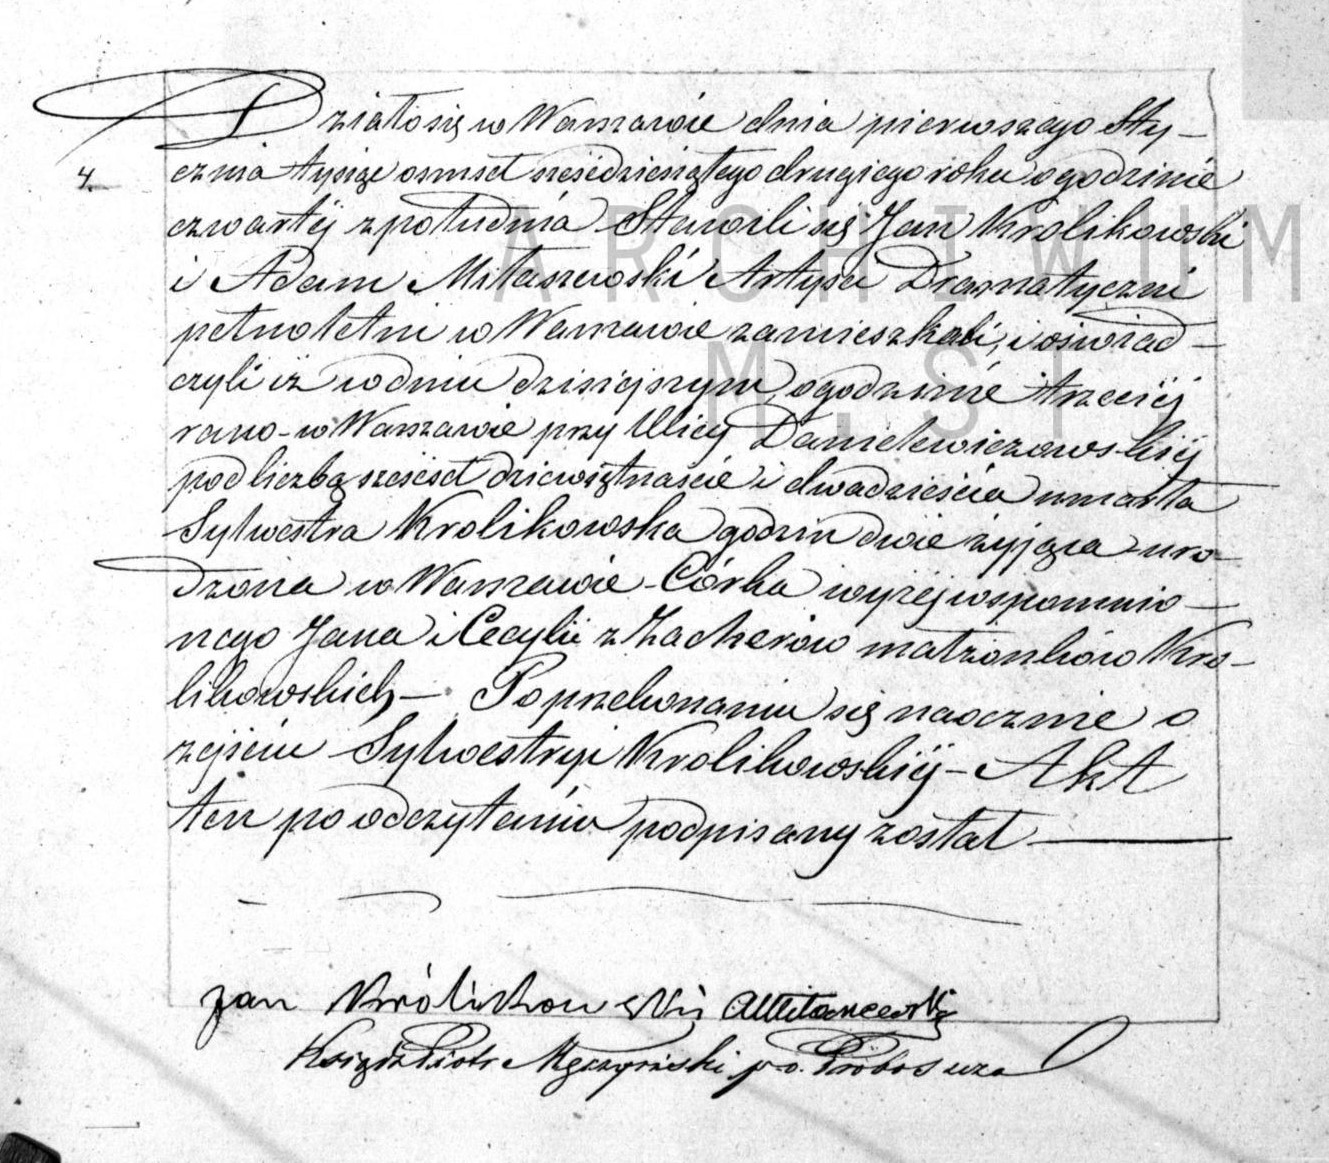 Działo się w Warszawie dnia pierwszego Sty-
4. cznia tysiąc osmset sześcdziesiątego drugiego roku o godzinie
czwartéj z południa Stawili się Jan Krolikowski
i Adam Miłaszewski Artyści Dramatyczni
pełnoletni w Warszawie zamieszkali, i oświad-
czyli iż w dniu dzisiejszym, o godzinie trzeciéj
rano w Warszawie przy Ulicy Danielewiczowskiéj
pod liczbą sześcset dziewiętnaście i dwadzieścia umarła
Sylwestra Krolikowska godzin dwie żyjąca uro-
dzona w Warszawie Córka wyżéj wspomnio-
nego Jana i Cecylii z Zacherów małżonków Kro-
likowskich - Po przekonaniu się naocznie o
zejściu Sylwestryi Krolikowskiéj - Akt
ten po odczytaniu podpisany został
Jan Królikowski AMiłaszewski
Ksiądz Piotr Męczyński p. o. Proboszcza
ARCHIWUM
M. ST